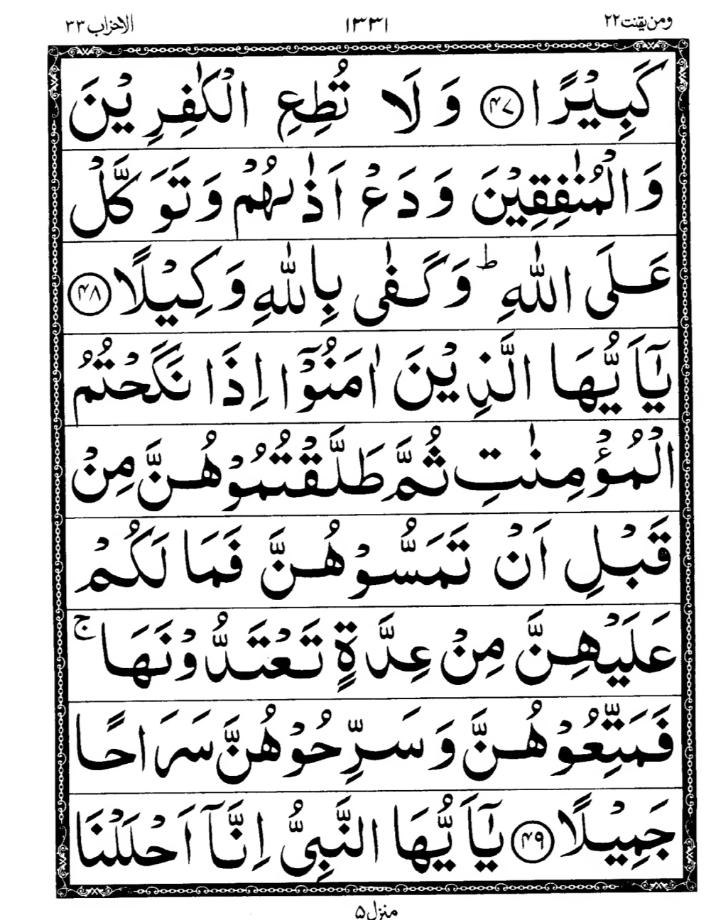 ومن يقنت ٢٢ ١٣٣١ الاحزاب ٣٣
كَبِيْرًا ﴿۴۷﴾ وَ لَا تُطِعِ الْكٰفِرِيْنَ
وَالْمُنٰفِقِيْنَ وَدَعْ اَذٰىهُمْ وَتَوَكَّلْ
عَلَى اللّٰهِ ؕ وَكَفٰى بِاللّٰهِ وَكِيْلًا ﴿۴۸﴾
يٰۤاَيُّهَا الَّذِيْنَ اٰمَنُوْۤا اِذَا نَكَحْتُمُ
الْمُؤْمِنٰتِ ثُمَّ طَلَّقْتُمُوْهُنَّ مِنْ
قَبْلِ اَنْ تَمَسُّوْهُنَّ فَمَا لَكُمْ
عَلَيْهِنَّ مِنْ عِدَّةٍ تَعْتَدُّوْنَهَا ۚ
فَمَتِّعُوْهُنَّ وَسَرِّحُوْهُنَّ سَرَاحًا
جَمِيْلًا ﴿۴۹﴾ يٰۤاَيُّهَا النَّبِىُّ اِنَّاۤ اَحْلَلْنَا
منزل ۵